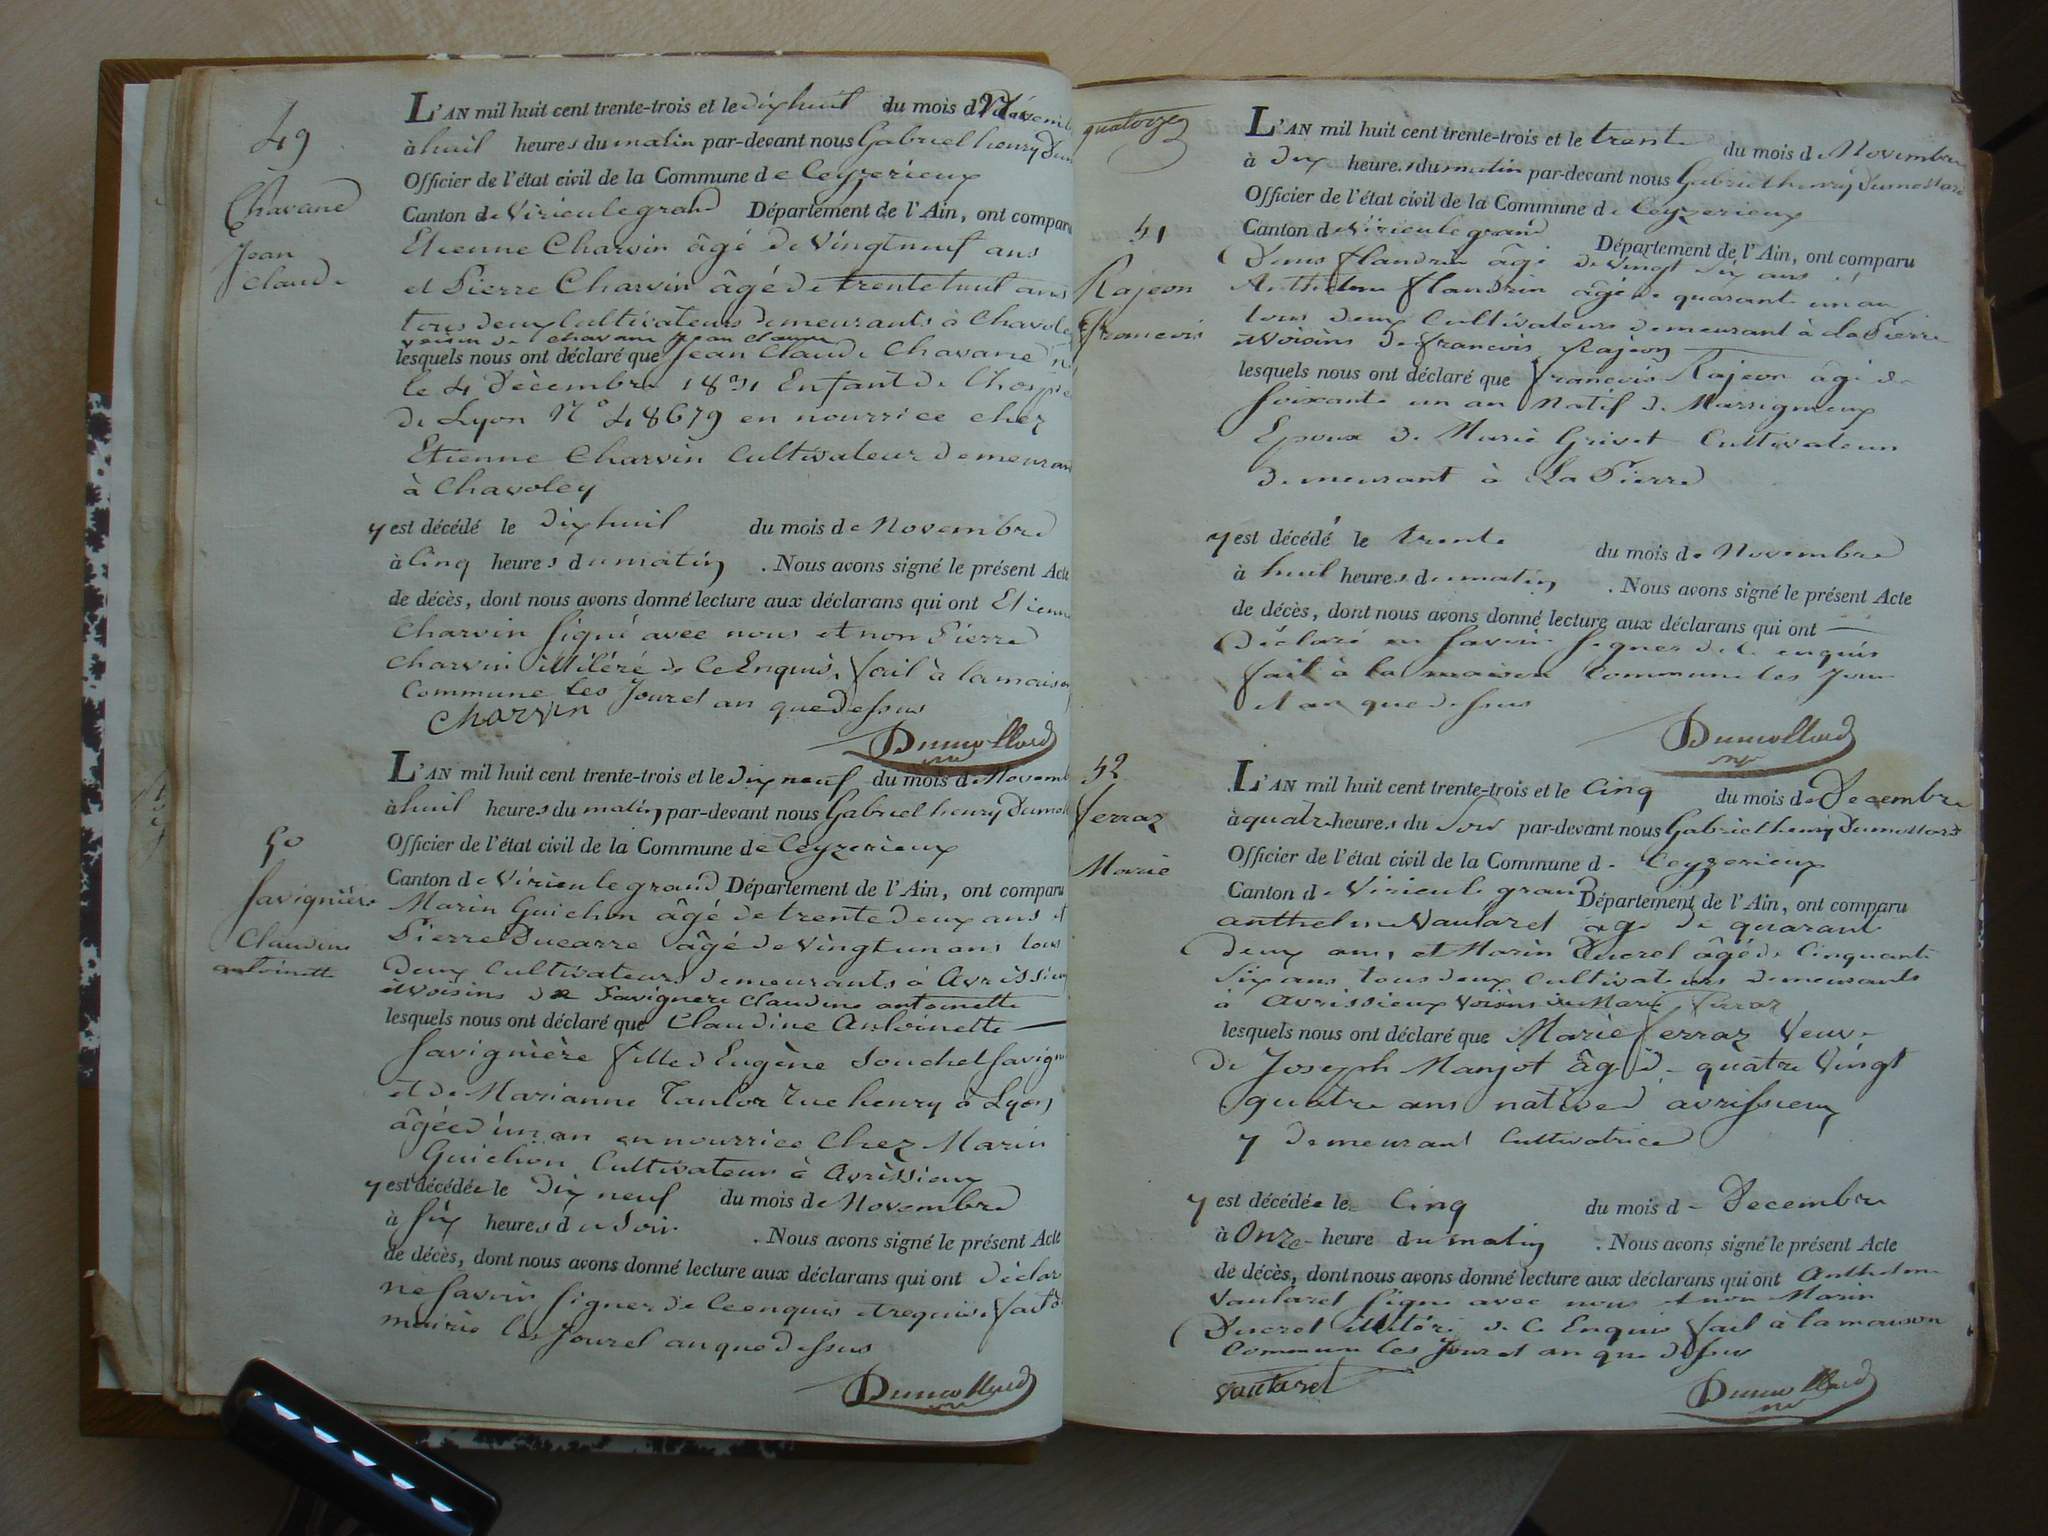 49
Chavane
Jean
Claude
L'AN mil huit cent trente-trois et le dix huit du mois de Novemb
à huit heures du matin par-devant nous Gabriel henry Dum
Officier de l'état civil de la Commune de Ceyzerieux
Canton de Virieu le grand Département de l'Ain, ont comparu
Etienne Charvin âgé de Vingt neuf ans
et Pierre Charvin âgé de trente huit ans
tous deux Cultivateurs demeurants à Chavoley
voisin de Chavane Jean Claude
lesquels nous ont déclaré que Jean Claude Chavane né
le 4 Décembre 1831 Enfant de l'hospice
de Lyon N° 48679 en nourrice chez
Etienne Charvin Cultivateur demeuran
à Chavoley
y est décédé le dix huit du mois de Novembre
à Cinq heures du matin . Nous avons signé le présent Acte
de décès, dont nous avons donné lecture aux déclarans qui ont Etienne
Charvin signé avec nous et non Pierre
Charvin illitéré de Ce Enquis, fait à la maison
Commune les Jour et an que dessus
Charvin
Dumollard
50
Savignière
Claudine
antoinette
L'AN mil huit cent trente-trois et le dix neuf du mois de Novemb
à huit heures du matin par-devant nous Gabriel henry Dumoll
Officier de l'état civil de la Commune de Ceyzerieux
Canton de Virieu le grand Département de l'Ain, ont comparu
Marin Guichon âgé de trente deux ans et
Pierre Ducarre âgé de Vingt un ans tous
deux Cultivateurs demeurants à Avrissieu
et voisins de Savignere Claudine antoinette
lesquels nous ont déclaré que Claudine Antoinette
Savignière fille d Eugène Souchet Savign
et de Marianne Tantor rue henry à Lyon
âgée d'un an en nourrice Chez Marin
Guichon Cultivateur à Avrissieux
y est décédée le Dix neuf du mois de Novembre
à Six heures du Soir . Nous avons signé le présent Acte
de décès, dont nous avons donné lecture aux déclarans qui ont déclar
ne savoir signer de Ce enquis et requis fait à
mairie les Jour et an que dessus
Dumollard
quatorze
51
Rajeon
francois
L'AN mil huit cent trente-trois et le trente du mois de Novembre
à dix heures du matin par-devant nous Gabriel henry Dumollard
Officier de l'état civil de la Commune de Ceyzerieux
Canton de Virieu le grand Département de l'Ain, ont comparu
Denis flandrin âgé de Vingt Six ans
Anthelme flandrin âgé de quarant un an
tous deux Cultivateurs demeurant à La Pierre
et Voisins de francois Rajeon
lesquels nous ont déclaré que francois Rajeon âgé de
Soixante un an Natif de Massignieux
Epoux de Marie Grivet Cultivateur
demeurant à La Pierre
y est décédé le trente du mois de Novembre
à huit heures du matin . Nous avons signé le présent Acte
de décès, dont nous avons donné lecture aux déclarans qui ont
Déclaré ne Savoir Signer de Ce enquis
fait à la maison Commune les Jour
et an que dessus
Dumollard
52
ferraz
Marie
L'AN mil huit cent trente-trois et le Cinq du mois de Decembre
à quatre heures du Soir par-devant nous Gabriel henry Dumollard
Officier de l'état civil de la Commune de Ceyzerieux
Canton de Virieu le grand Département de l'Ain, ont comparu
anthelme Vautaret age de quarant
deux ans, et Marin Ducret âgé de Cinquante
Six ans tous deux Cultivateurs demeurants
à Avrissieux Voisins de Marie ferraz
lesquels nous ont déclaré que Marie ferraz Veuve
de Joseph Manjot âgé de quatre Vingt
quatre ans native d' avrissieux
y demeurant Cultivatrice
y est décédée le Cinq du mois de Decembre
à Onze heure du matin . Nous avons signé le présent Acte
de décès, dont nous avons donné lecture aux déclarans qui ont Anthelme
Vautaret Signe avec nous et non Marin
Ducret illitéré de Ce Enquis fait à la maison
Commune les Jour et an que dessus
Vautaret
Dumollard